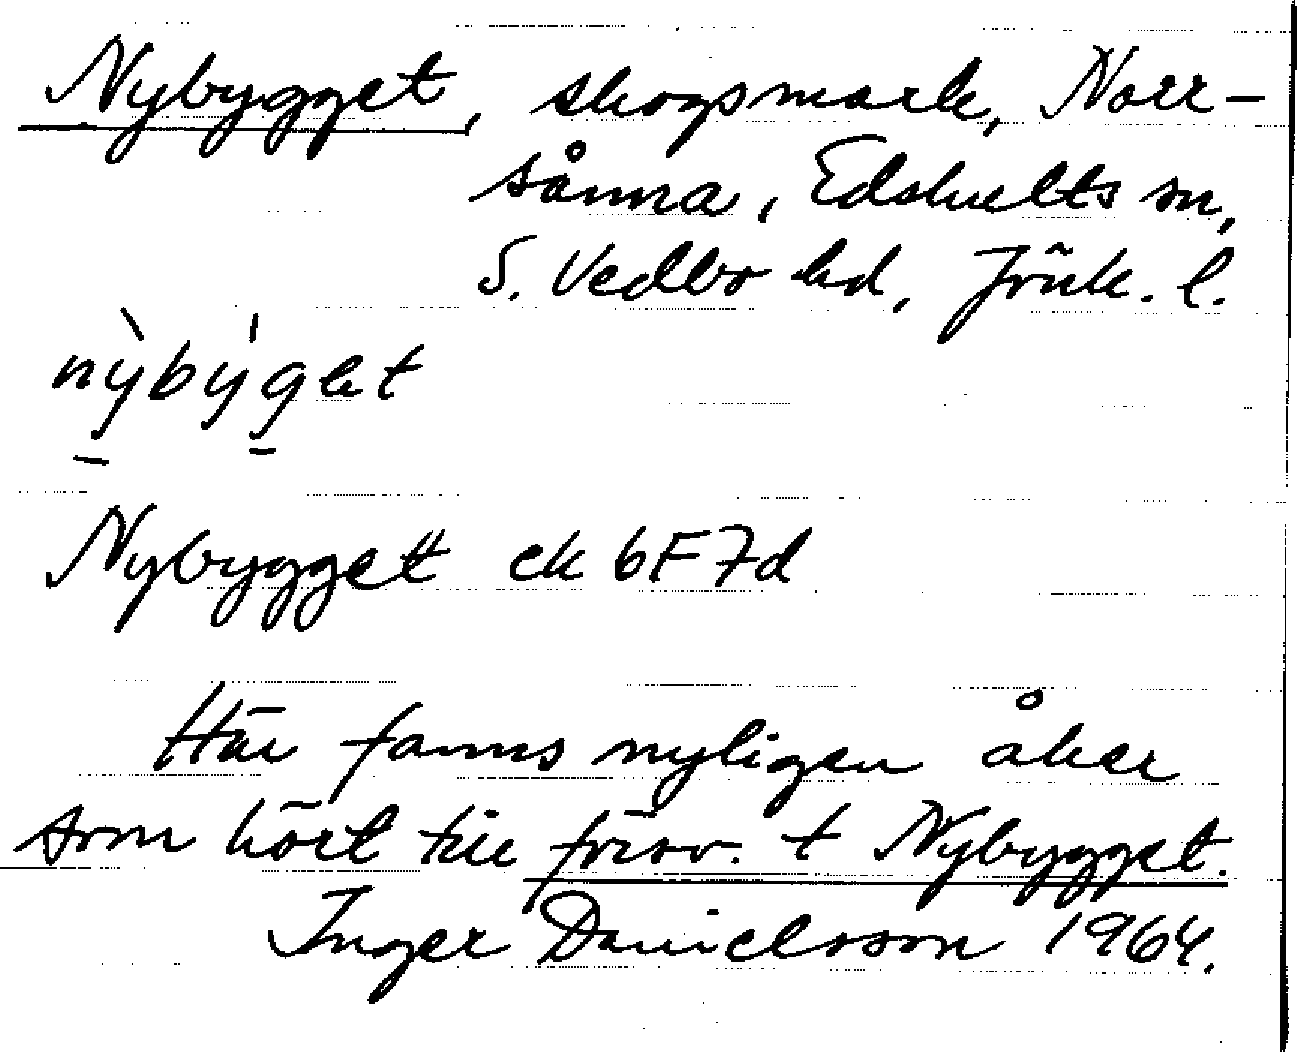 Nybygget, skogsmark, Norr-
sånna, Edshults sn,
S. Vedbo hd, Jönk. l.
nỳbýget
Nybygget ek 6F7d
Här fanns nyligen åker
som hört till försv. t Nybygget.
Inger Danielsson 1964.